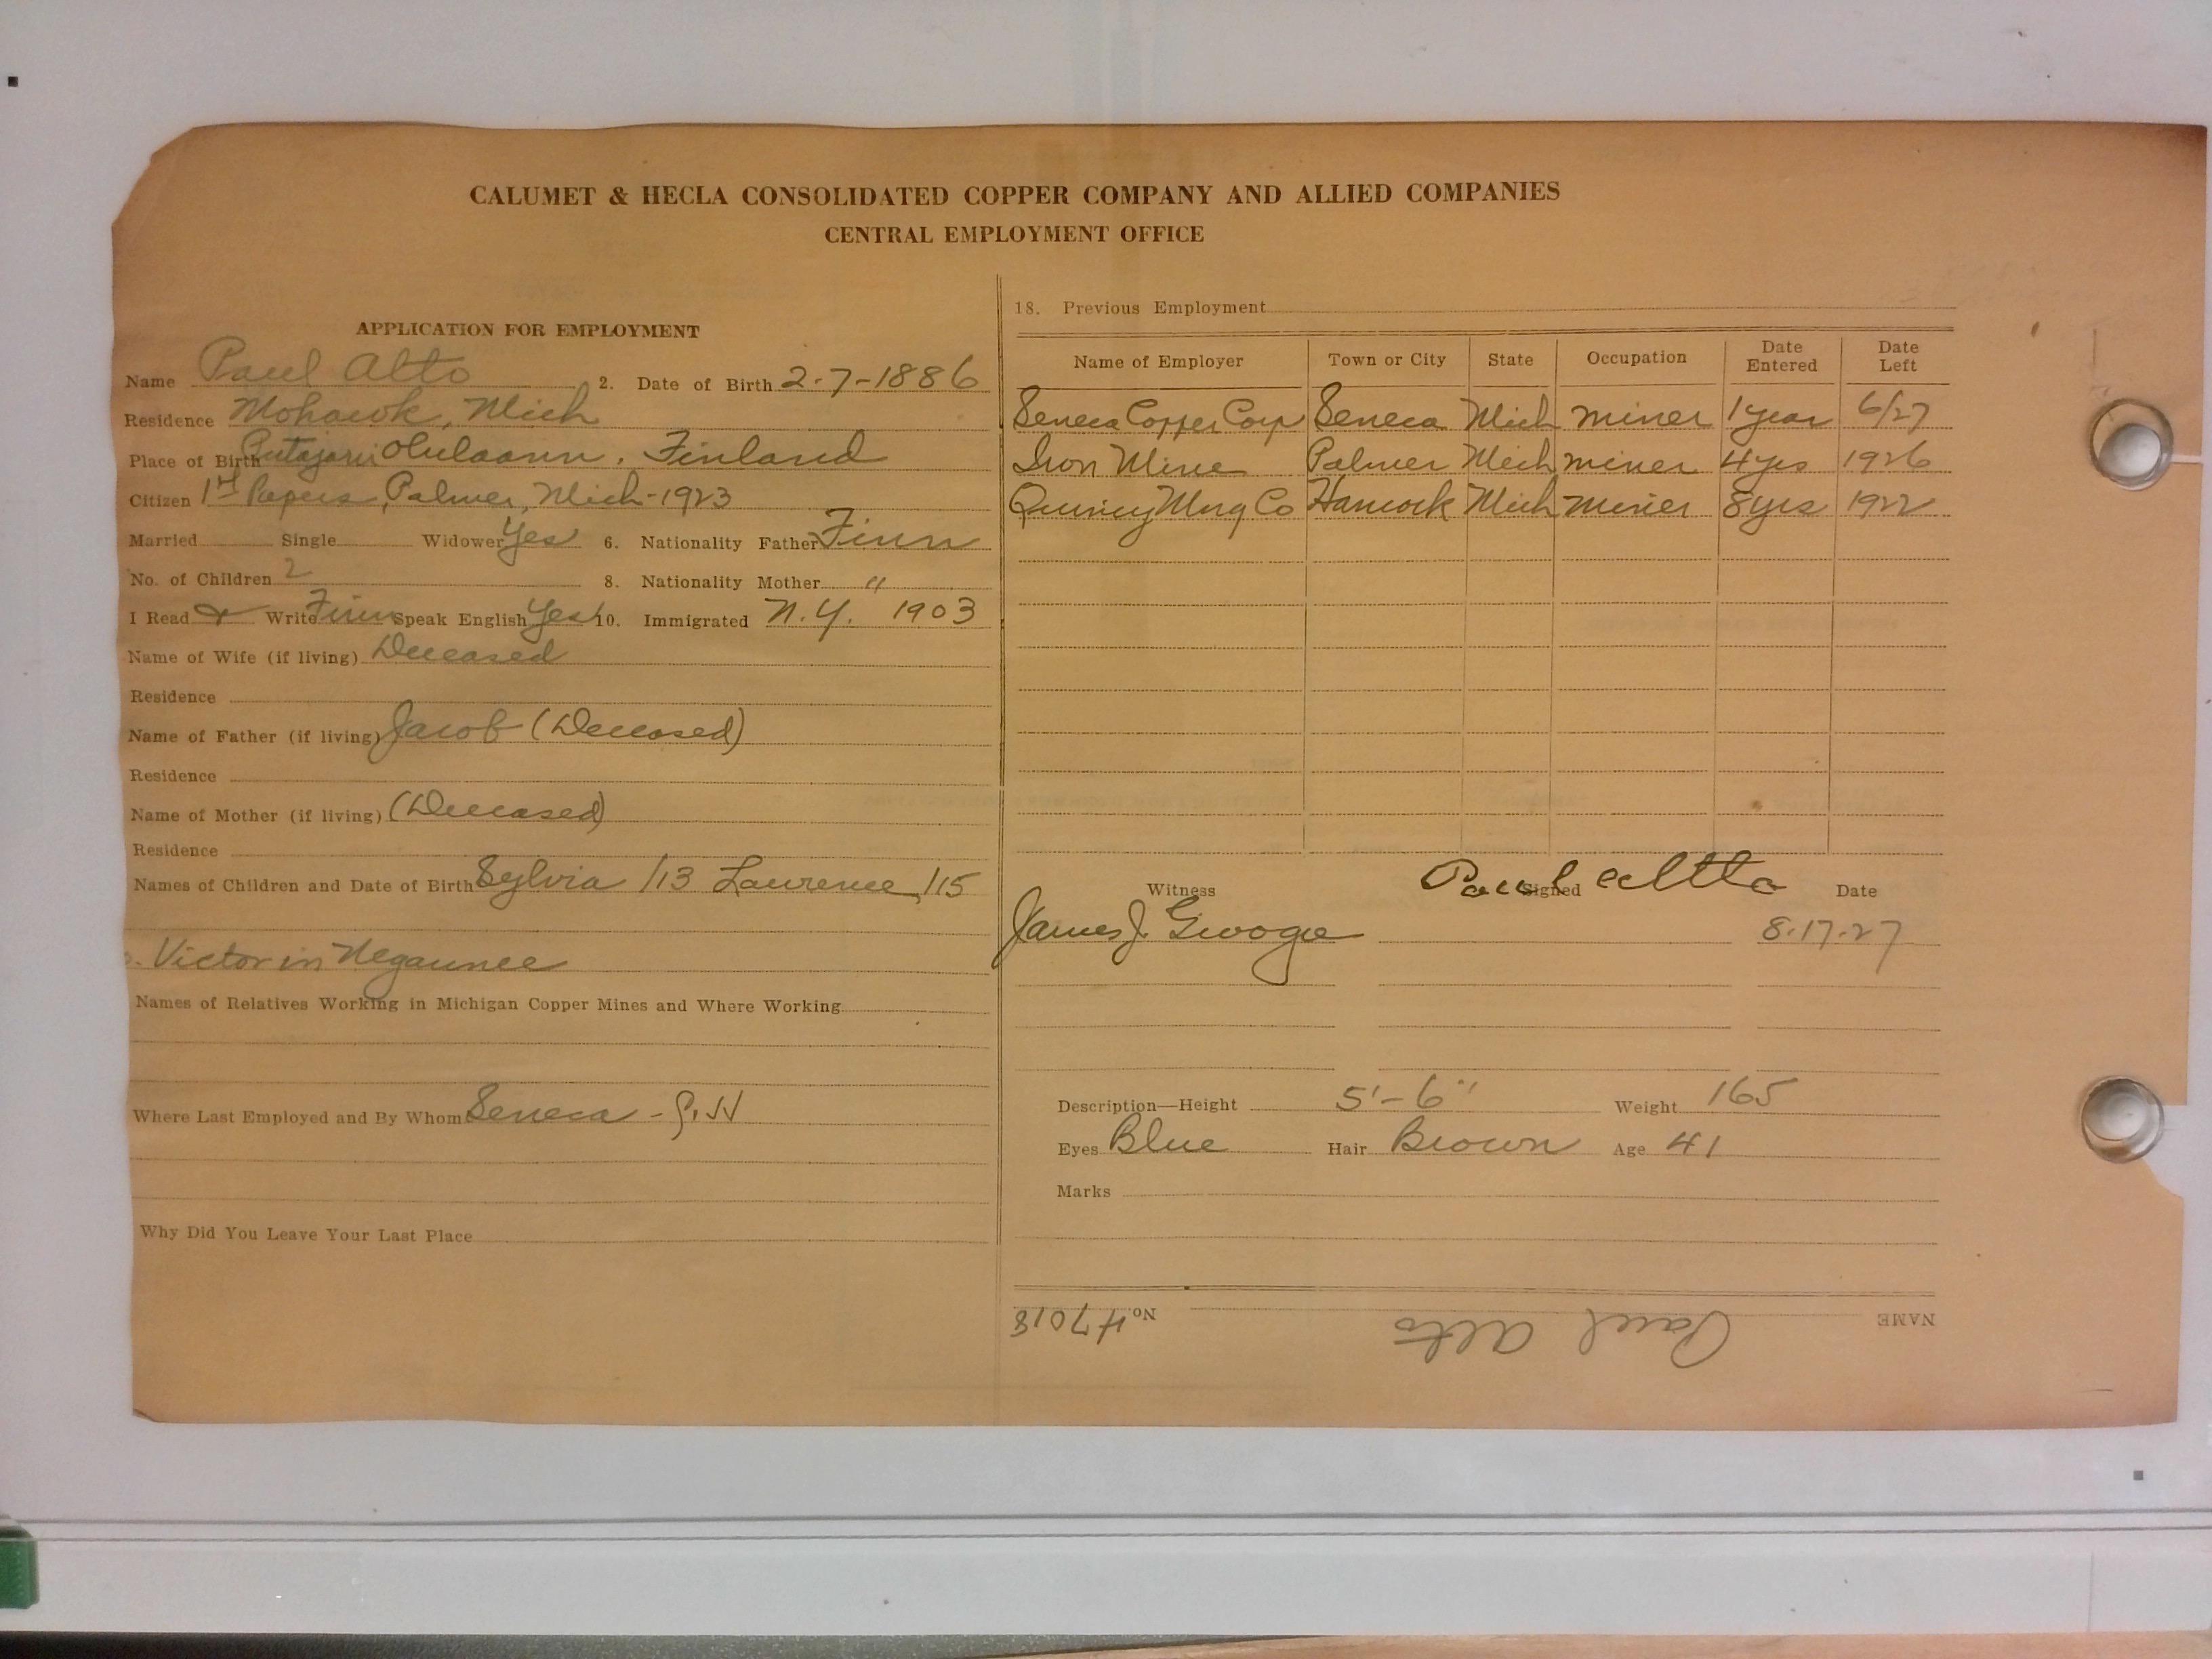 CALUMET & HECLA CONSOLIDATED COPPER COMPANY AND ALLIED COMPANIES
CENTRAL EMPLOYMENT OFFICE
APPLICATION FOR EMPLOYMENT
Name Paul Alto 2. Date of Birth 2-7-1886
Residence Mohawk, Mich
Place of Birth Finland
Citizen 1st Papers, Palmer, Mich-1923
Married Single Widower Yes 6. Nationality Father Finn
No. of Children 2 8. Nationality Mother "
I Read & Write Finn Speak English Yes 10. Immigrated N.Y. 1903
Name of Wife (if living) Deceased
Residence
Name of Father (if living) Jacob (Deceased)
Residence
Name of Mother (if living) (Deceased)
Residence
Names of Children and Date of Birth Sylvia /13 Laurence /15
Victor in Negaunee
Names of Relatives Working in Michigan Copper Mines and Where Working
Where Last Employed and By Whom Seneca -
Why Did You Leave Your Last Place
18. Previous Employment
Name of Employer Town or City State Occupation Date Entered Date Left
Seneca Copper Corp Seneca Mich miner 1 year 6/27
Iron Mine Palmer Mich miner 4 yrs 1926
Quincy Mng Co Hancock Mich miner 8 yrs 1922
Witness Signed Paul Alto Date
James J. 8-17-27
Description—Height 5'-6" Weight 165
Eyes Blue Hair Brown Age 41
Marks
NAME Paul Alto No. 47018